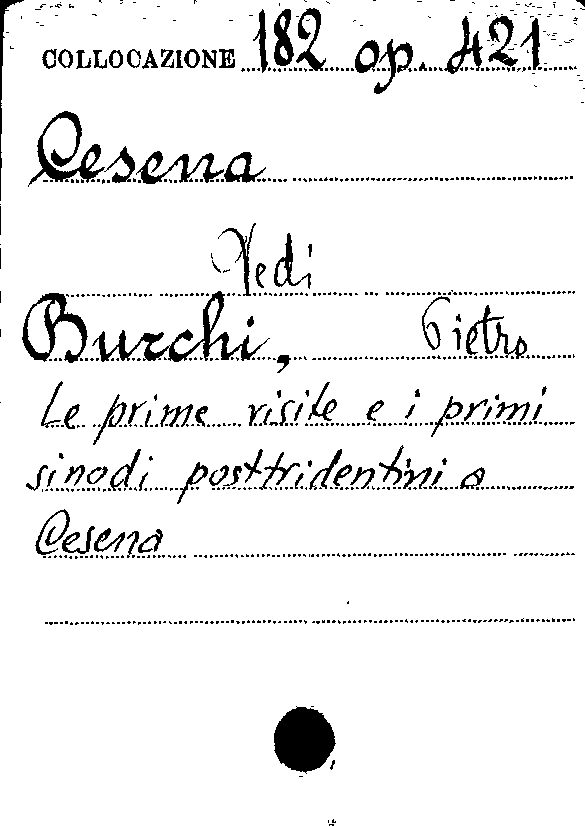 COLLOCAZIONE 182 op. 421
Cesena
Vedi
Burchi, Pietro
Le prime visite e i primi
sinodi posttridentini a
Cesena